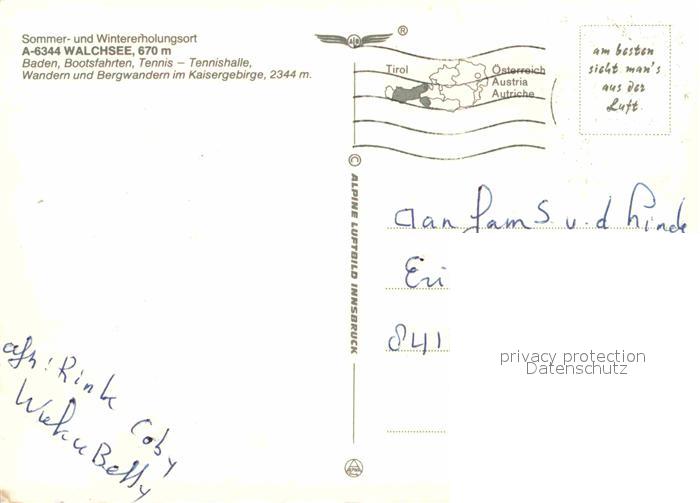 Sommer- und Wintererholungsort
A-6344 WALCHSEE, 670 m
Baden, Bootsfahrten, Tennis – Tennishalle,
Wandern und Bergwandern im Kaisergebirge, 2344 m.
®
Tirol
Österreich
Austria
Autriche
am besten
sieht man's
aus der
Luft.
© ALPINE LUFTBILD INNSBRUCK
aan fam S. v. d
841
privacy protection
Datenschutz
afz: Rinke Coby
Betty